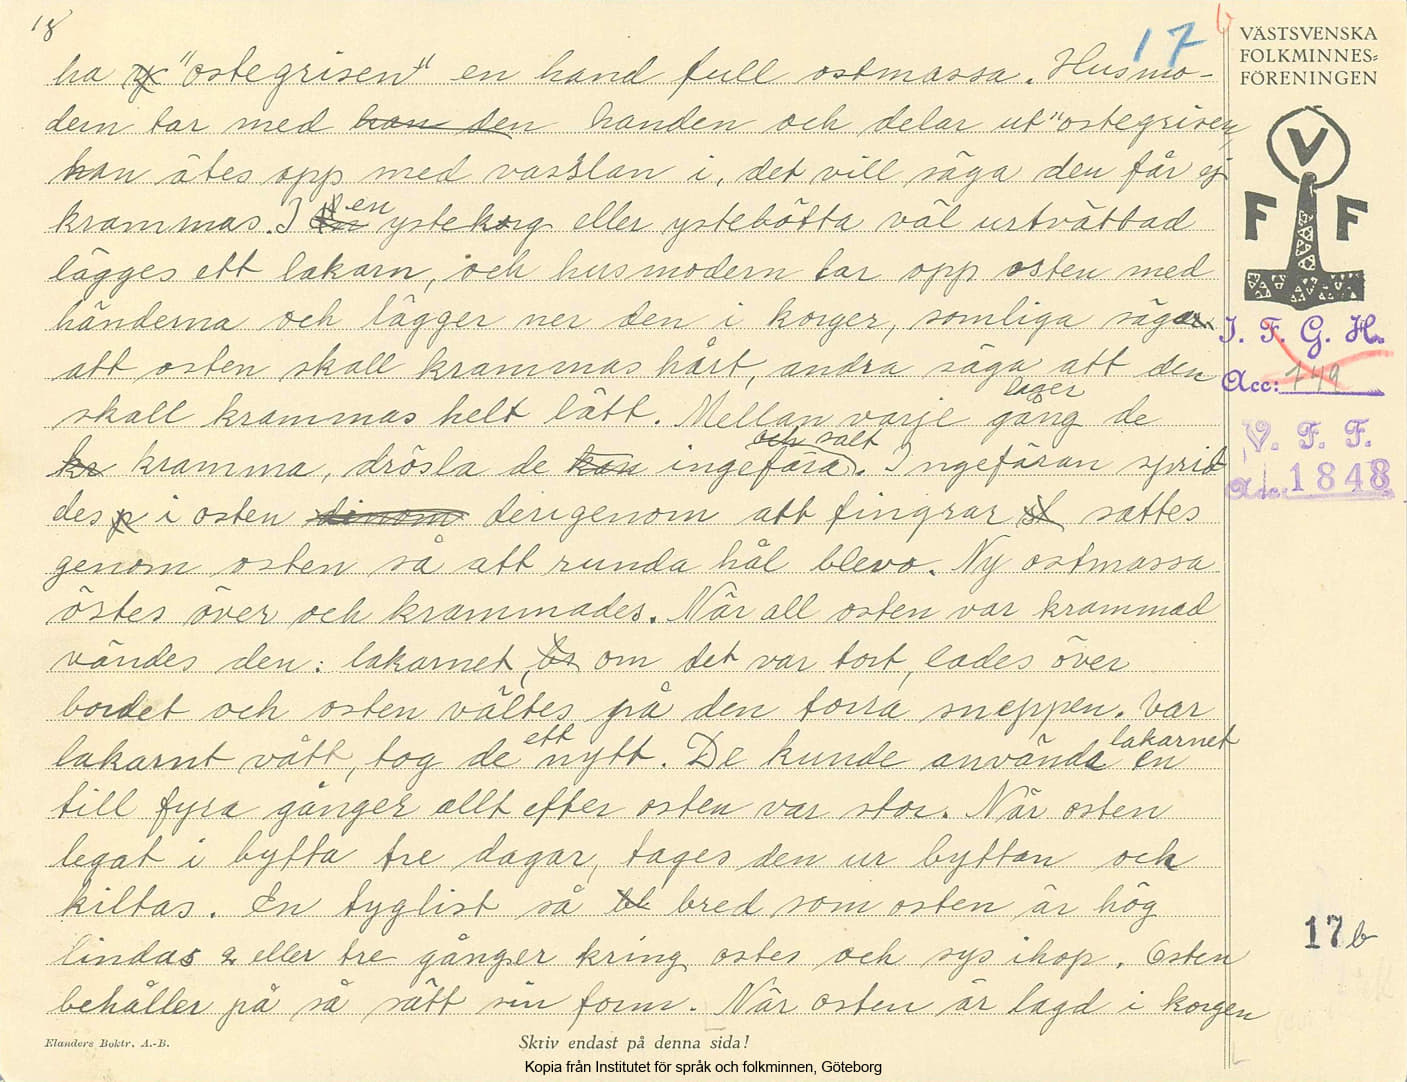 18
17 b
VÄSTSVENSKA
FOLKMINNES=
FÖRENINGEN
V
F F
I. F. G. H.
Acc: 749
V. F. F.
Acc. 1848
ha "ostegrisen" en hand full ostmassa. Husmo-
dern tar med han den handen och delar ut "ostegrisen,
kan ätes opp med vasslan i, det vill säga den får ej
krammas. I en ystekorg eller ystebötta väl urtvättad
lägges ett lakarn, och husmodern tar opp osten med
händerna och lägger ner den i korger, somliga säger
att osten skall krammas hårt, andra säga att den
lager
skall krammas helt lätt. Mellan varje gång de
och salt
kr kramma, drösla de kan ingefära. Ingefäran sprid
des i osten derigenom att fingrar st sattes
genom osten så att runda hål blevo. Ny ostmassa
östes över och krammades. När all osten var krammad
vändes den: lakarnet, om det var tort, lades över
bordet och osten vältes på den torra sneppen. Var
ett lakarnet
lakarnt vått, tog de nytt. De kunde använda en
till fyra gånger allt efter osten var stor. När osten
legat i bytta tre dagar, tages den ur byttan och
kiltas. En tyglist så bred som osten är hög
lindas 2 eller tre gånger kring ostes och sys ihop. Osten
behåller på så sätt sin form. När osten är lagd i korgen
17 b
Elanders Boktr. A.-B.
Skriv endast på denna sida!
Kopia från Institutet för språk och folkminnen, Göteborg